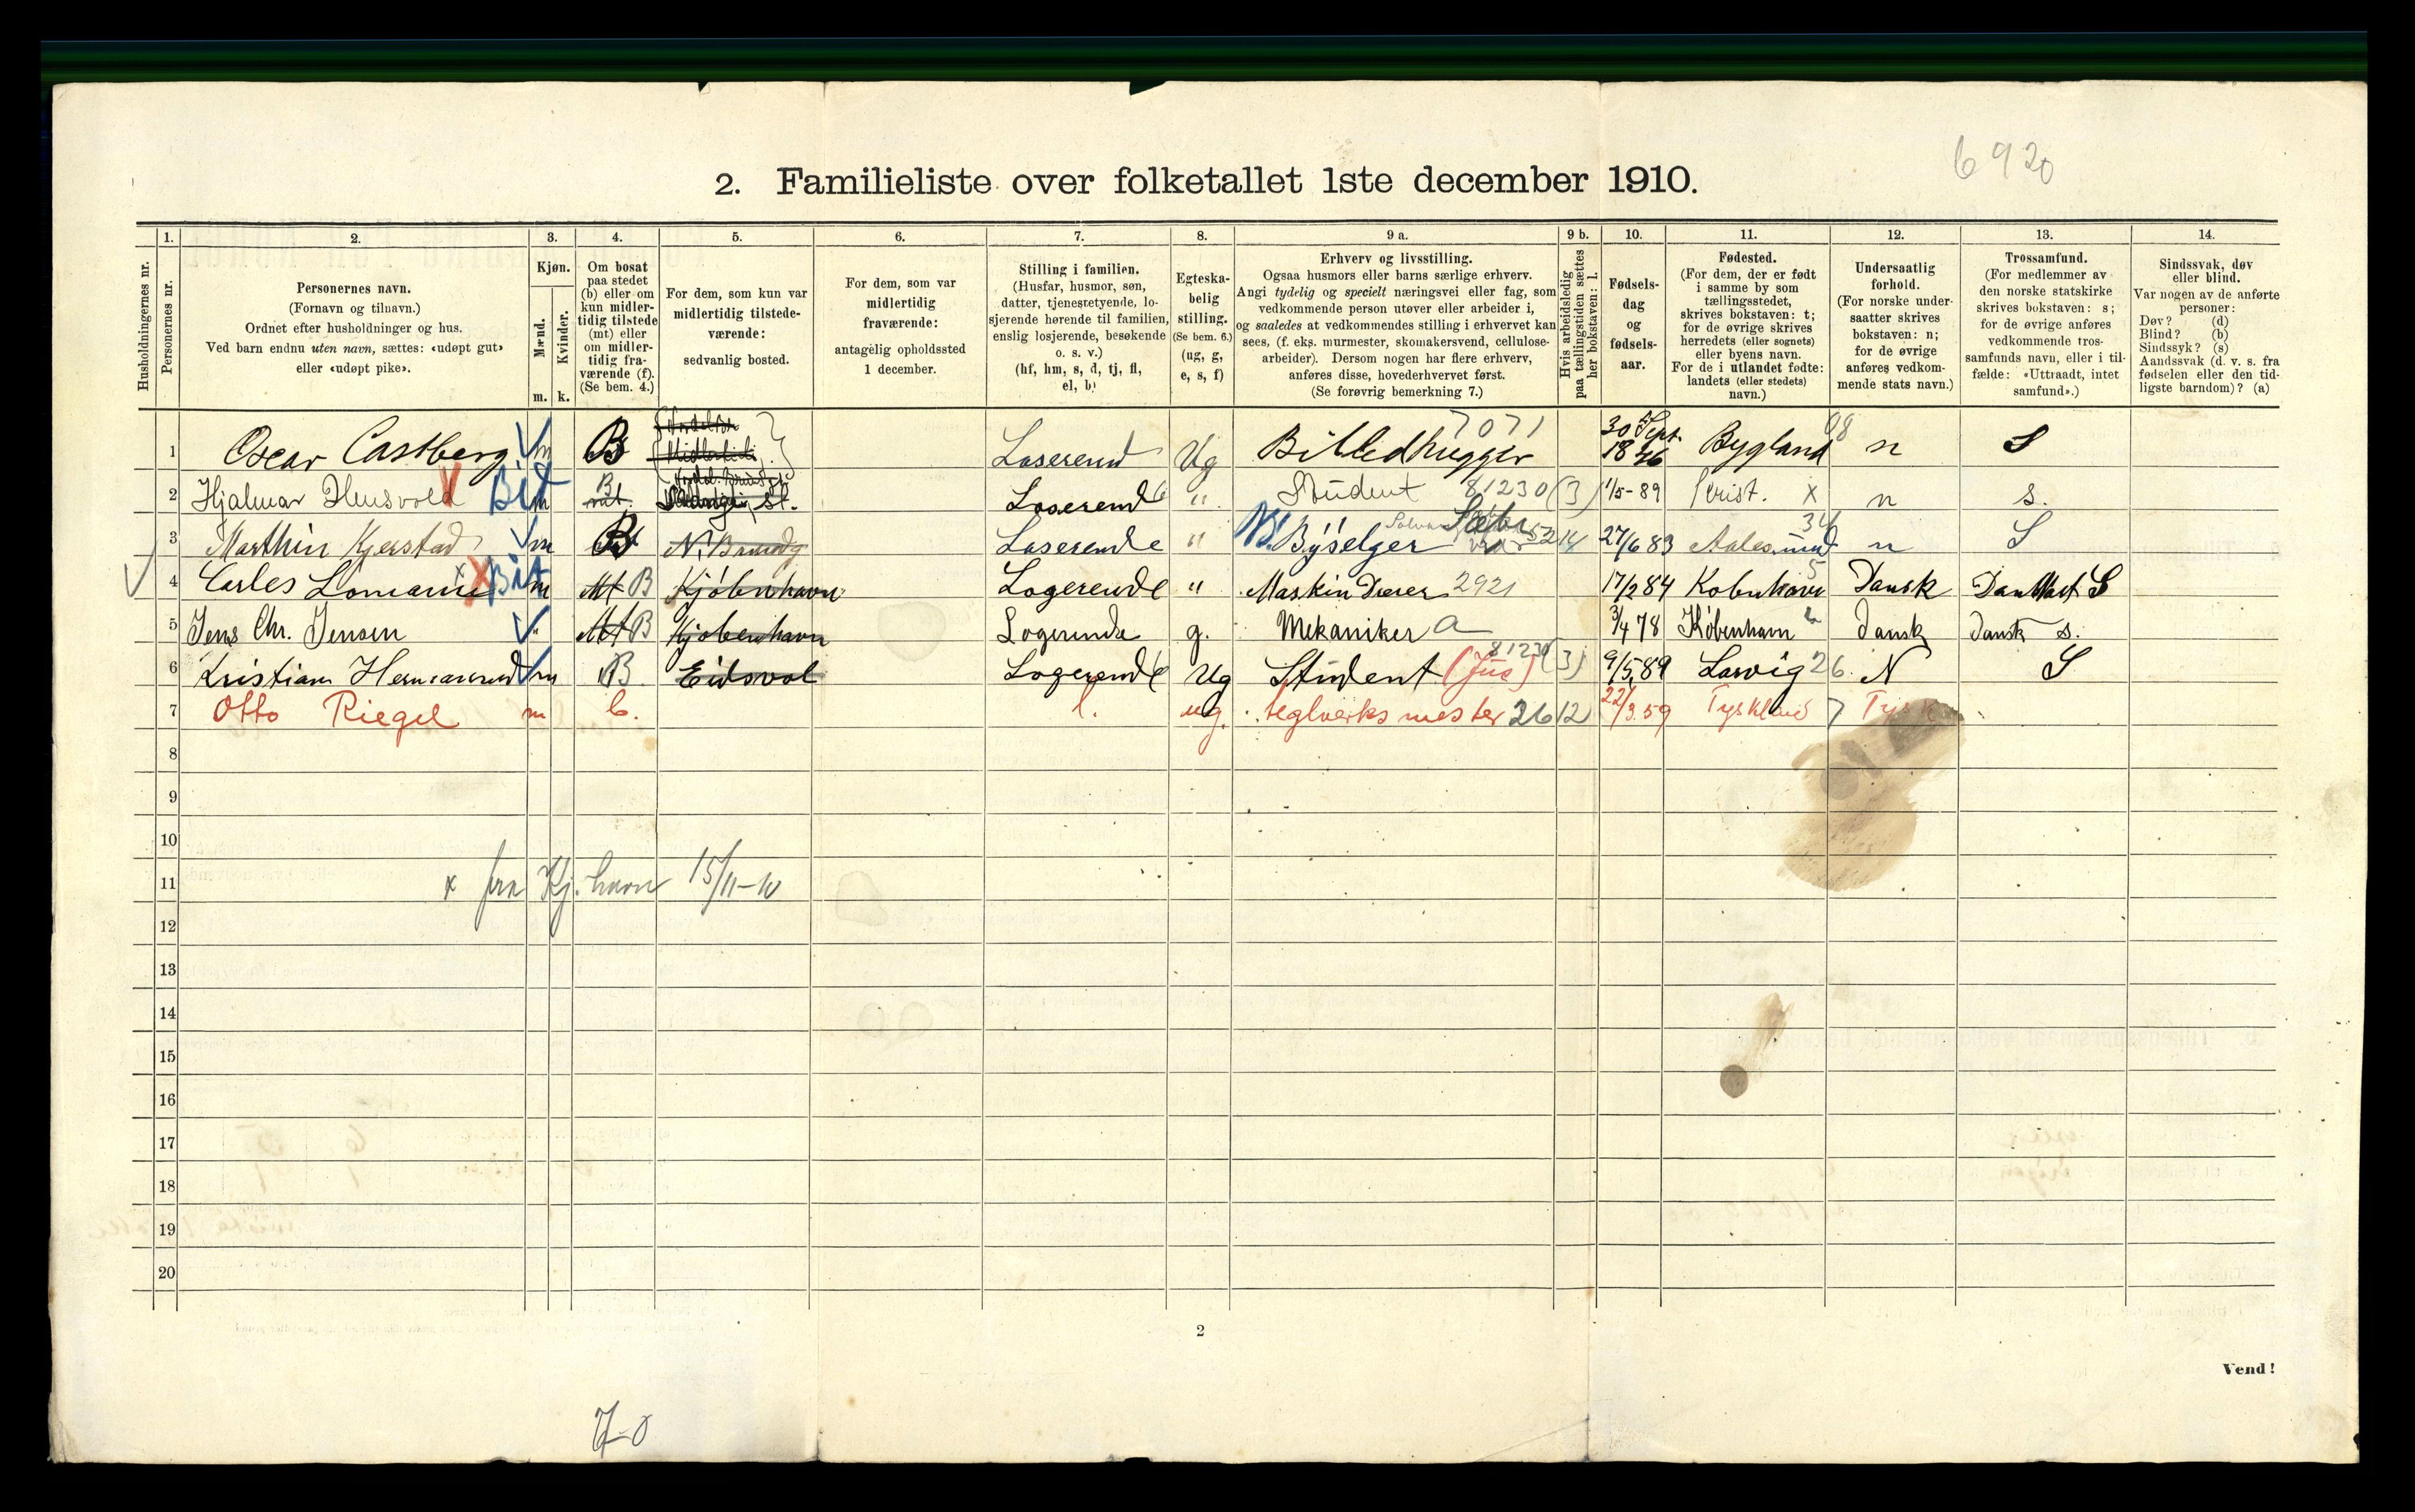 6920
2. Familieliste over folketallet 1ste december 1910.
1. 2. 3. 4. 5. 6. 7. 8. 9 a. 9 b. 10. 11. 12. 13. 14.
Husholdningernes nr.
Personernes nr.
Personernes navn.
(Fornavn og tilnavn.)
Ordnet efter husholdninger og hus.
Ved barn endnu uten navn, sættes: «udøpt gut»
eller «udøpt pike».
Kjøn.
Mænd.
Kvinder.
m. k.
Om bosat
paa stedet
(b) eller om
kun midler-
tidig tilstede
(mt) eller
om midler-
tidig fra-
værende (f).
(Se bem. 4.)
For dem, som kun var
midlertidig tilstede-
værende:
sedvanlig bosted.
For dem, som var
midlertidig
fraværende:
antagelig opholdssted
1 december.
Stilling i familien.
(Husfar, husmor, søn,
datter, tjenestetyende, lo-
sjerende hørende til familien,
enslig losjerende, besøkende
o. s. v.)
(hf, hm, s, d, tj, fl,
el, b)
Egteska-
belig
stilling.
(Se bem. 6.)
(ug, g,
e, s, f)
Erhverv og livsstilling.
Ogsaa husmors eller barns særlige erhverv.
Angi tydelig og specielt næringsvei eller fag, som
vedkommende person utøver eller arbeider i,
og saaledes at vedkommendes stilling i erhvervet kan
sees, (f. eks. murmester, skomakersvend, cellulose-
arbeider). Dersom nogen har flere erhverv,
anføres disse, hovederhvervet først.
(Se forøvrig bemerkning 7.)
Hvis arbeidsledig
paa tællingstiden sættes
her bokstaven: l.
Fødsels-
dag
og
fødsels-
aar.
Fødested.
(For dem, der er født
i samme by som
tællingsstedet,
skrives bokstaven: t;
for de øvrige skrives
herredets (eller sognets)
eller byens navn.
For de i utlandet fødte:
landets (eller stedets)
navn.)
Undersaatlig
forhold.
(For norske under-
saatter skrives
bokstaven: n;
for de øvrige
anføres vedkom-
mende stats navn.)
Trossamfund.
(For medlemmer av
den norske statskirke
skrives bokstaven: s;
for de øvrige anføres
vedkommende tros-
samfunds navn, eller i til-
fælde: «Uttraadt, intet
samfund».)
Sindssvak, døv
eller blind.
Var nogen av de anførte
personer:
Døv? (d)
Blind? (b)
Sindssyk? (s)
Aandssvak (d. v. s. fra
fødselen eller den tid-
ligste barndom)? (a)
1 Oscar Castberg m B Loserend Ug Billedhugger 7071 30 Sept. 1846 Bygland 08 n S
2 Hjalmar Huusvold Bit m B mt. st. Loserend " Student 81230 (3) 1/5-89 Krist. x n s.
3 Marthin Kjerstad m B N. Brandg Loserende " Byselger 5214 27/6 83 Aalesund 34 n S
4 Carles Lomann x Bit m Mt B Kjöbenhavn Logerende " Maskin Dreier 2921 17/2 84 Kobenhavn 5 Dansk Dansk S
5 Jens Chr. Jensen " Mt B Kjøbenhavn Logerende g. Mekaniker a 3/4 78 København Dansk Dansk s.
6 Kristian Hermansrud m B Eidsvol Logerende Ug Student (Jus) 81230 (3) 9/5 89 Larvig 26 N S
7 Otto Riegel m b. l. ug. teglverksmester 2612 22/3.59 Tyskland 7 Tysk
8
9
10
11 x fra Kj.havn 15/11-10
12
13
14
15
16
17
18
19
20
2
Vend!
7-0